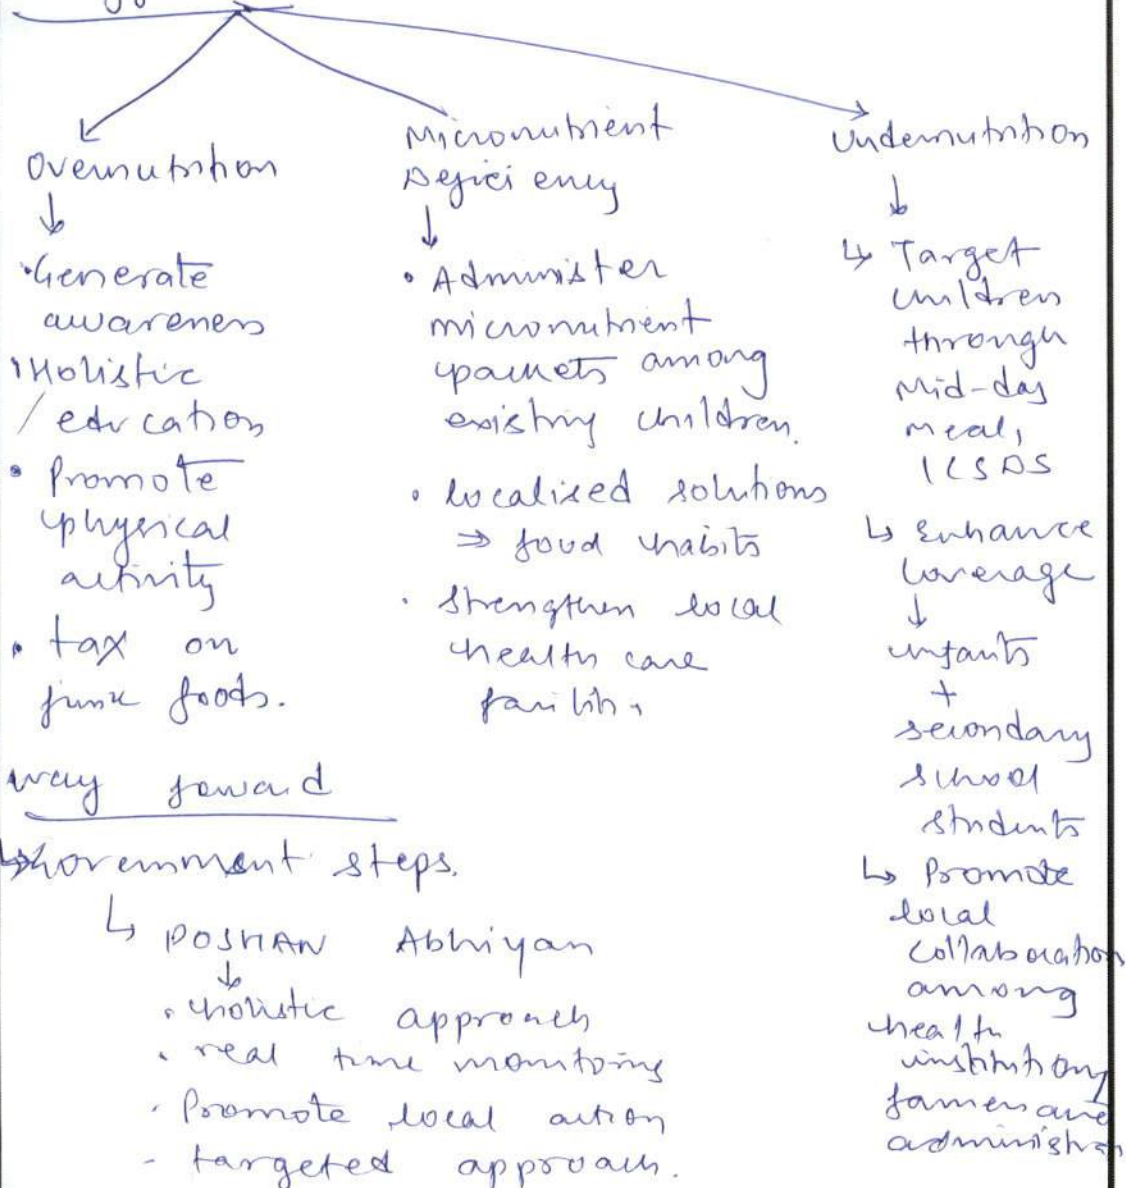 Overnutrition
↓
• Generate
awareness
• Holistic
/ education
• Promote
physical
activity
• tax on
junk foods.
Micronutrient
Deficiency
↓
• Administer
micronutrient
packets among
existing children.
• localised solutions
⇒ food habits
• strengthen local
health care
Undernutrition
↓
↳ Target
children
through
Mid-day
meal,
ICSDS
↳ Enhance
coverage
↓
infants
+
secondary
school
students
↳ Promote
local
collaboration
among
health
institutions
way foward
↳ Government steps.
↳ POSHAN Abhiyan
↓
• holistic approach
• real time monitoring
• Promote local action
- targeted approach.